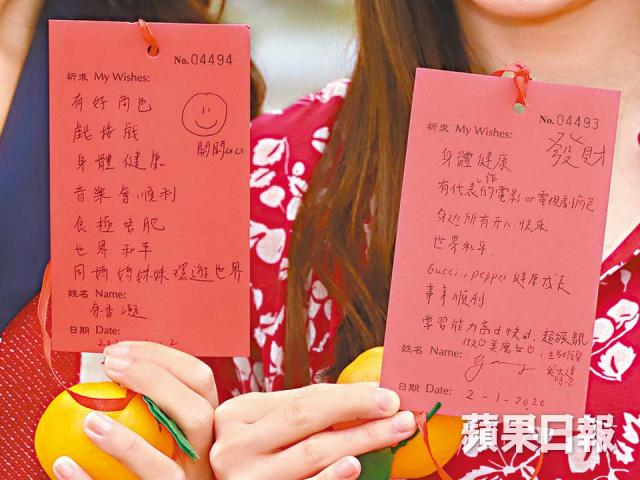 No.04494
祈求 My Wishes:
有好角色
戲接戲
開開心心
身體健康
音樂會順利
食極唔肥
世界和平
同媽媽妹妹環遊世界
姓名 Name:
余香凝
日期 Date:
No.04493
祈求 My Wishes:
發財
身體健康
有代表作的電影 or 電視劇角色
身边所有开心快乐
世界和平
Gucci, pepper 健康成長
事事順利
学習能力高d快d, 超級靚
姓名 Name:
日期 Date:
2-1-2020
蘋果日報